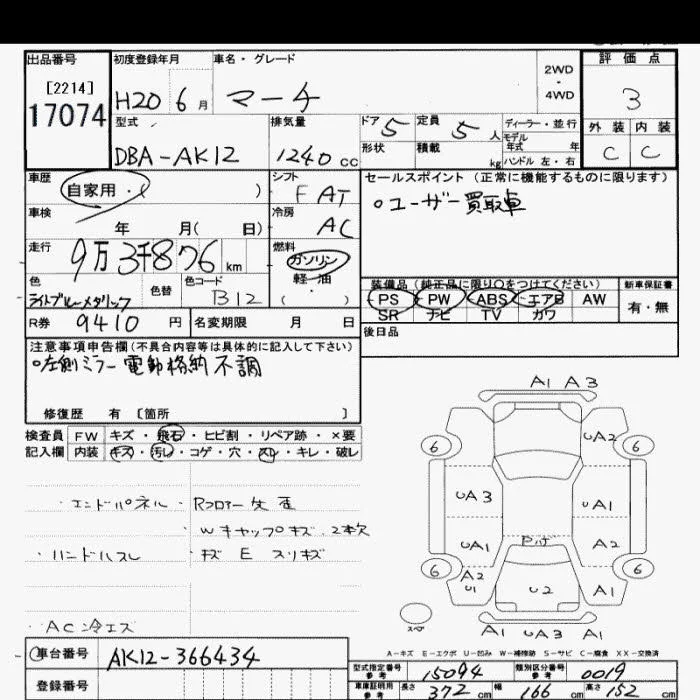 出品番号 初度登録年月 車名・グレード 2WD・4WD 評価点
[2214] H20 6月 マーチ 3
17074 型式 排気量 ドア 5 定員 5人 ディーラー・並行 外装 内装
DBA-AK12 1240cc 形状 積載 kg モデル年式 年 C C
ハンドル 左・右
車歴 自家用・( ) シフト FAT セールスポイント (正常に機能するものに限ります)
車検 年 月( 日) 冷房 AC ○ユーザー買取車
走行 9万3千876km 燃料 ガソリン
軽・油
( ・ )
色 色替 色コード B12 装備品 (純正品に限り○をつけてください) 新車保証書
ライトブルーメタリック PS PW ABS エアB AW 有・無
SR ナビ TV カワ
R券 9410円 名変期限 月 日 後日品
注意事項申告欄(不具合内容等は具体的に記入して下さい)
○左側ミラー電動格納不調
修復歴 有 〔箇所 〕
検査員 FW キズ・飛石・ヒビ割・リペア跡・×要
記入欄 内装 キズ・汚レ・コゲ・穴・スレ・キレ・破レ
・エンドパネル・Rフロアー
・Wキャップキズ 2本欠
・ハンドルスレ ・キズ E スリキズ
・AC冷エス
A1 A3
6 UA2 6
UA3 UA1
UA1 A2
6 A2 U1 U2 A1 6
A1 UA3 A1
スペア
A-キズ E-エクボ U-凹み W-補修跡 S-サビ C-腐食 XX-交換済
車台番号 AK12-366434 型式指定番号 参考 15094 類別区分番号 参考 0019
登録番号 車庫証明用 参考 長さ 372cm 幅 166cm 高さ 152cm